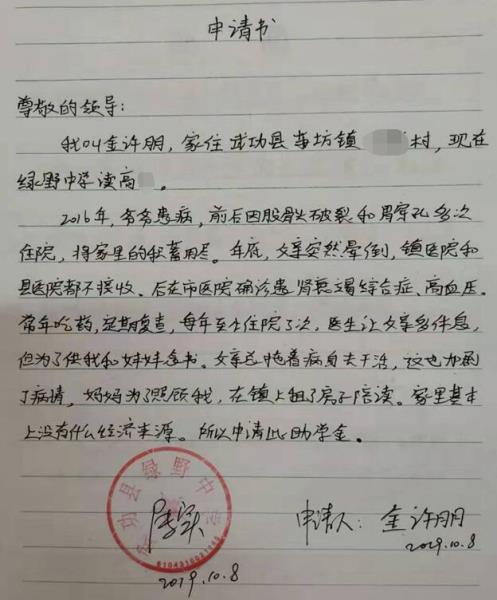 申请书
尊敬的领导：
我叫金许朋，家住武功县苏坊镇 村，现在
绿野中学读高 。
2016年，爷爷患病，前后因股骨头破裂和胃穿孔多次
住院，将家里的积蓄用尽。年底，父亲突然晕倒，镇医院和
县医院都不接收。后在市医院确诊患肾衰竭综合症、高血压。
常年吃药，定期复查，每年至少住院3次，医生让父亲多休息，
但为了供我和妹妹念书。父亲总拖着病身去干活，这也加剧
了病情，妈妈为了照顾我，在镇上租了房子陪读。家里基本
上没有什么经济来源。所以申请此助学金。
武功县绿野中学
6104310021146
属实
2019.10.8
申请人：金许朋
2019.10.8